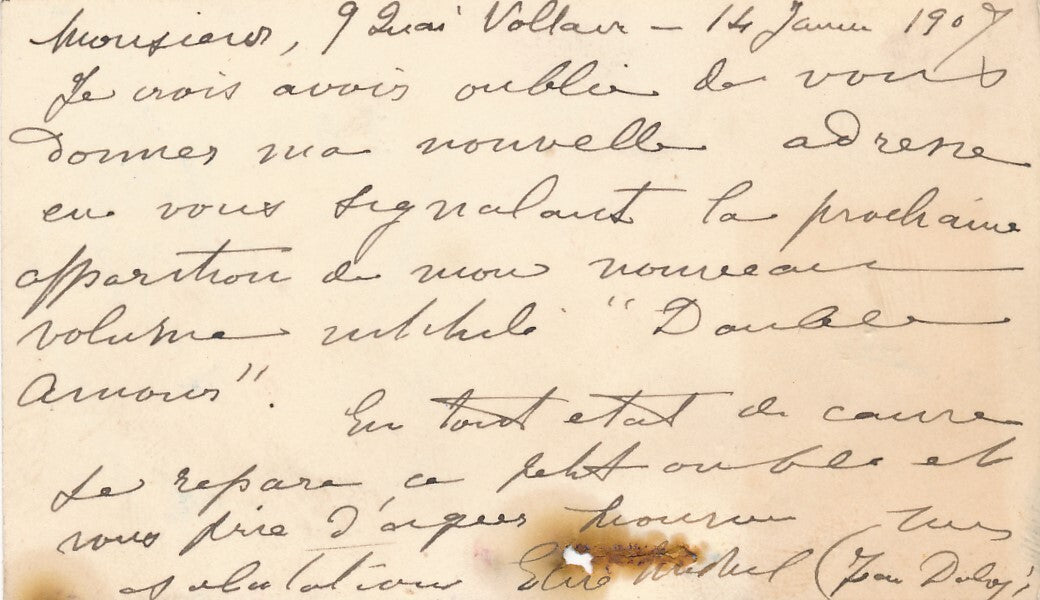 Monsieur, 9 Quai Voltaire – 14 Janvier 1907
Je crois avoir oublié de vous
donner ma nouvelle adresse
en vous signalant la prochaine
apparition de mon nouveau
volume intitulé "Double
Amour".
En tout etat de cause
je repare ce petit oubli et
vous prie d'agréer monsieur mes
salutations
(Jean